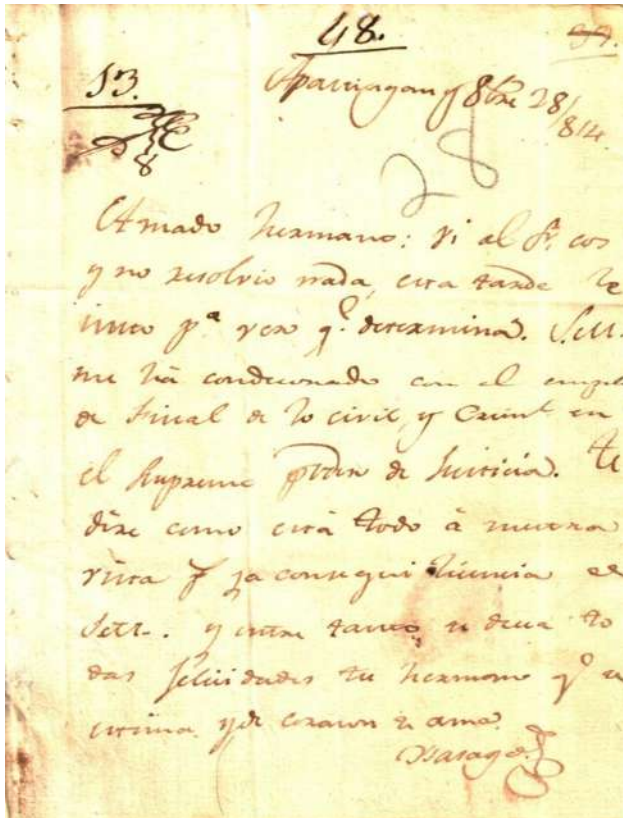 48.
39.
53.
Apatzingan y 8bre 28/814
28
Amado hermano: vi al Sr. cos
y no resolvio nada, esta tarde le
insto pa. ver q.e determina. S.M.
me há condecorado con el emple
de Fiscal de lo civil, y Crim.l en
el Supremo de Justicia. te
dire como está todo á nuestra
vista ya consegui licencia de
S.M. y entre tanto, te desea to
das felicidades tu hermano q.e te
estima y de corazon te ama.